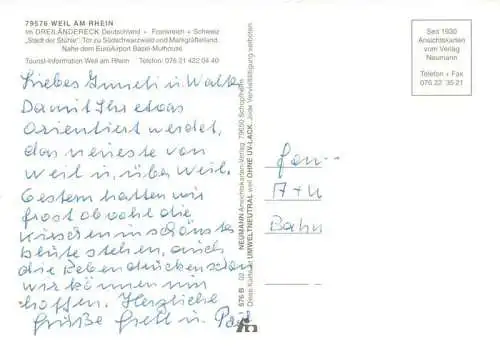 79576 WEIL AM RHEIN
Im DREILÄNDERECK Deutschland + Frankreich + Schweiz
„Stadt der Stühle“. Tor zu Südschwarzwald und Markgräflerland.
Nahe dem EuroAirport Basel-Mulhouse.
Tourist-Information Weil am Rhein Telefon: 076 21 422 04 40
Liebes u. Walter
Damit Ihr etwas
orientiert werdet,
das neueste von
Weil u. über Weil.
Gestern hatten wir
frost obwohl die
Kirschen in schönster
blüte stehen, auch
die Reben drücken schon
wir können nur
hoffen. Herzliche
Grüße Gretl u.
576 B 03 NEUMANN Ansichtskarten-Verlag 79650 Schopfheim
Diese Karte ist UMWELTNEUTRAL weil OHNE UV-LACK. Jede Vervielfältigung verboten.
Seit 1930
Ansichtskarten
vom Verlag
Neumann
Telefon + Fax
076 22 35 21
Fam.
A + U
Bahn